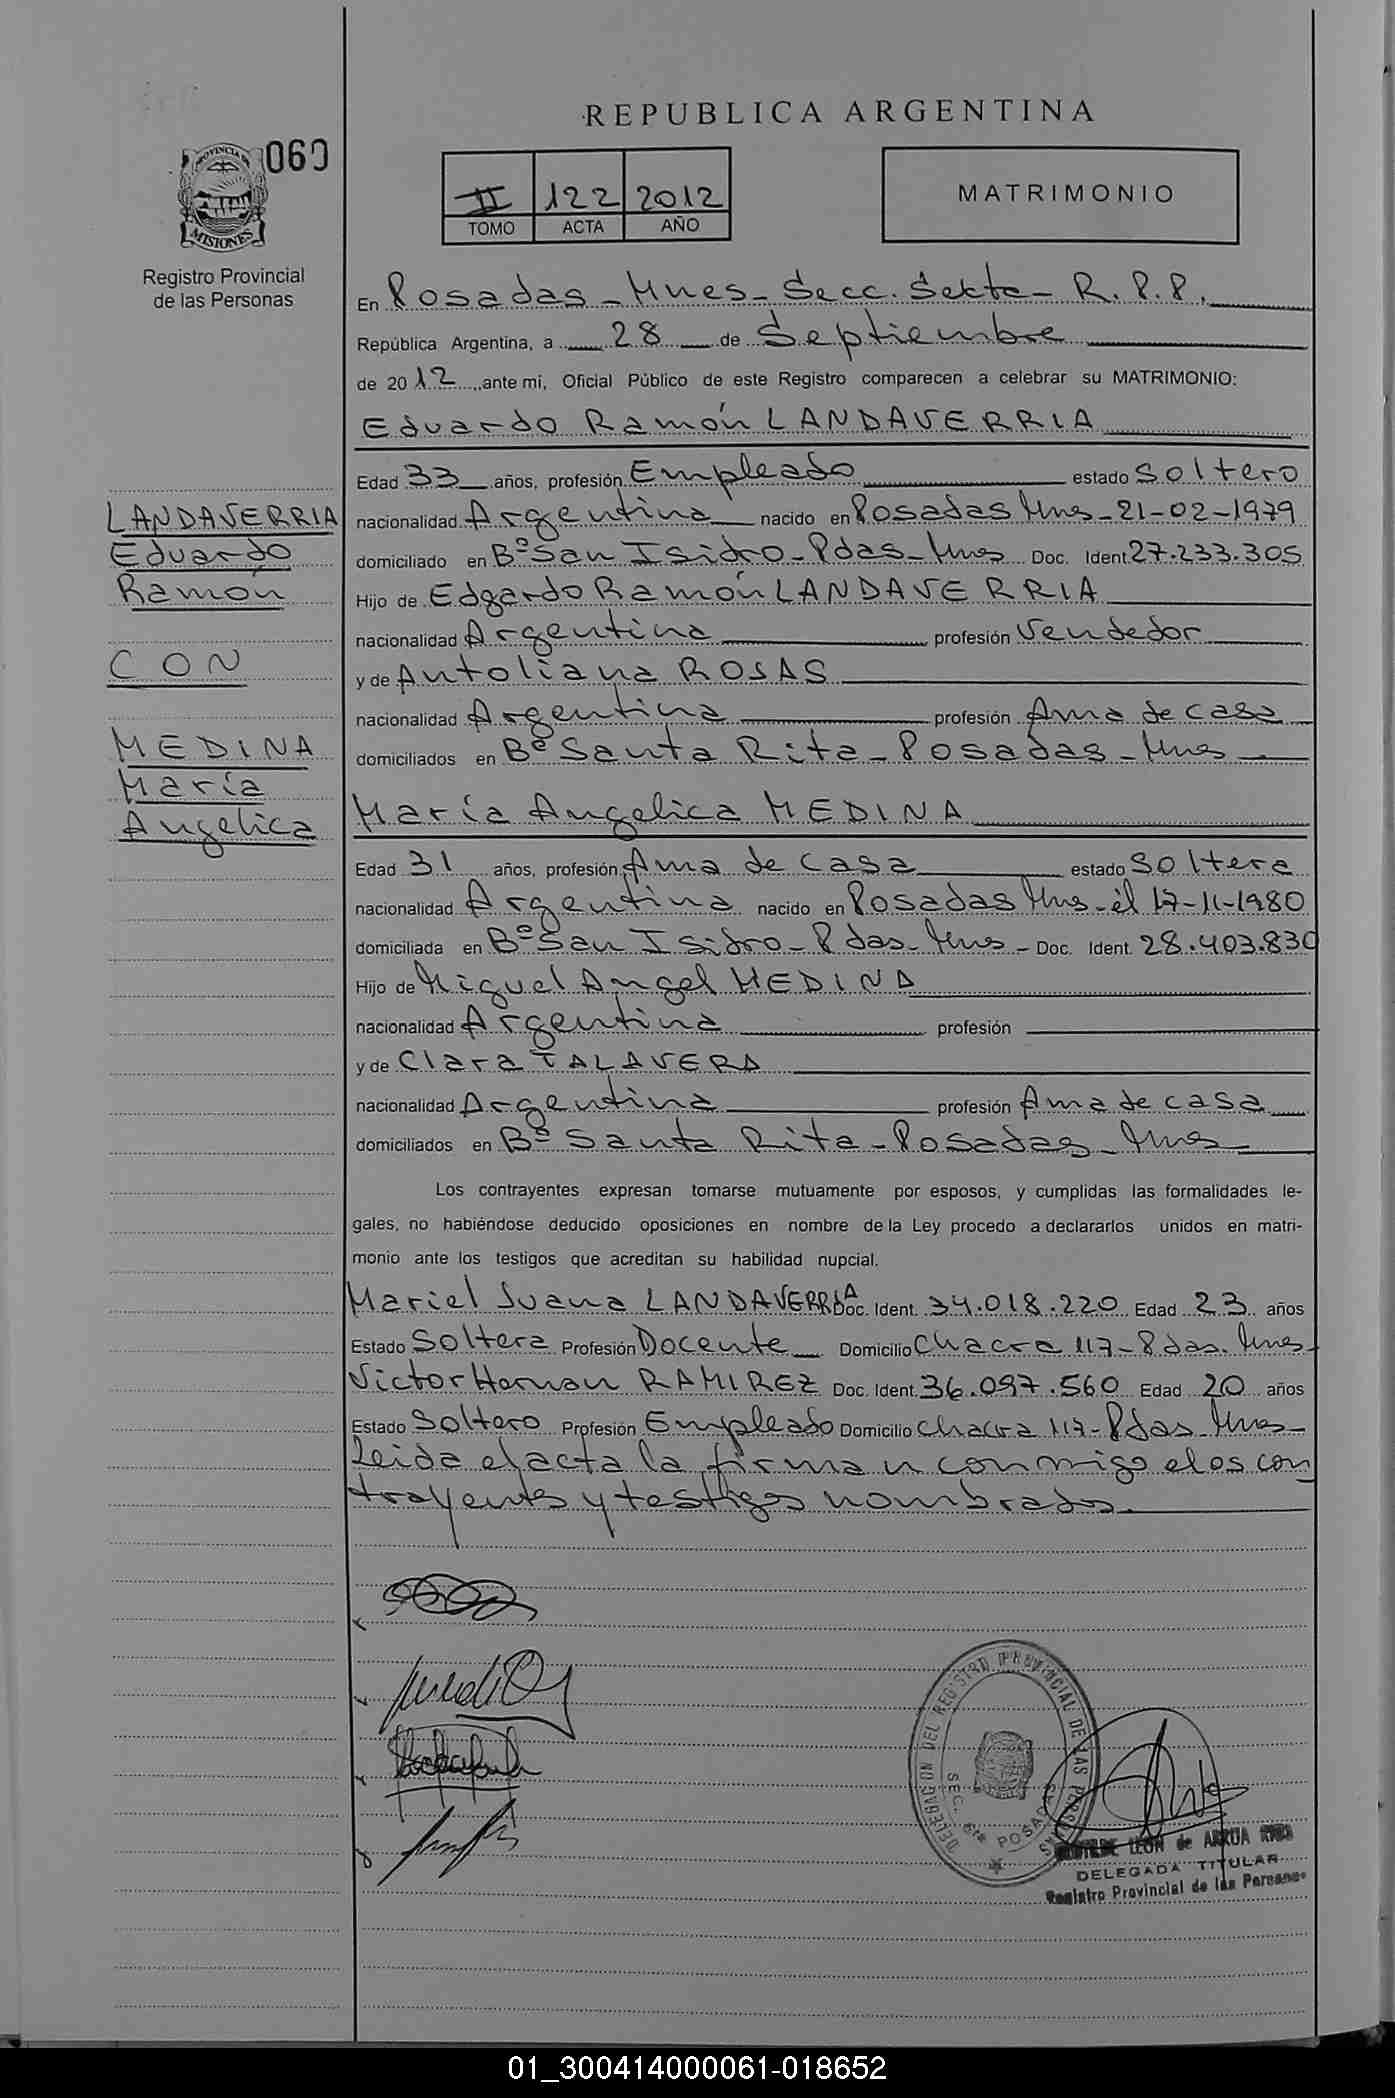 REPUBLICA ARGENTINA
060
PROVINCIA DE
MISIONES
Registro Provincial
de las Personas
II 122 2012
TOMO ACTA AÑO
MATRIMONIO
En Posadas - Mnes - Secc. Sexta - R. P. P.
República Argentina, a 28 de Septiembre
de 2012, ante mí, Oficial Público de este Registro comparecen a celebrar su MATRIMONIO:
Eduardo Ramón LANDAVERRIA
Edad 33 años, profesión Empleado estado Soltero
LANDAVERRIA
nacionalidad Argentina nacido en Posadas Mnes - 21-02-1979
Eduardo
domiciliado en Bº San Isidro - Pdas - Mnes Doc. Ident 27.233.305
Ramón
Hijo de Edgardo Ramón LANDAVERRIA
nacionalidad Argentina profesión Vendedor
CON
y de Antoliana ROSAS
nacionalidad Argentina profesión Ama de casa
MEDINA
domiciliados en Bº Santa Rita - Posadas - Mnes
María
Angelica
María Angelica MEDINA
Edad 31 años, profesión Ama de casa estado Soltera
nacionalidad Argentina nacido en Posadas Mnes - el 17-11-1980
domiciliada en Bº San Isidro - Pdas - Mnes - Doc. Ident. 28.403.830
Hijo de Miguel Angel MEDINA
nacionalidad Argentina profesión
y de Clara TALAVERA
nacionalidad Argentina profesión Ama de casa
domiciliados en Bº Santa Rita - Posadas - Mnes
Los contrayentes expresan tomarse mutuamente por esposos, y cumplidas las formalidades le-
gales, no habiéndose deducido oposiciones en nombre de la Ley procedo a declararlos unidos en matri-
monio ante los testigos que acreditan su habilidad nupcial.
Mariel Juana LANDAVERRIA Doc. Ident. 34.018.220 Edad 23 años
Estado Soltera Profesión Docente Domicilio Chacra 117 - Pdas. Mnes -
Victor Hernan RAMIREZ Doc. Ident. 36.097.560 Edad 20 años
Estado Soltero Profesión Empleado Domicilio Chacra 117 - Pdas - Mnes -
Leida el acta la firman conmigo el os con
trayentes y testigos nombrados.
DELEGACION DEL REGISTRO PROVINCIAL DE LAS PERSONAS
SEC. 6ta POSADAS
LEON de ARRUA
DELEGADA TITULAR
Registro Provincial de las Personas
01_300414000061-018652